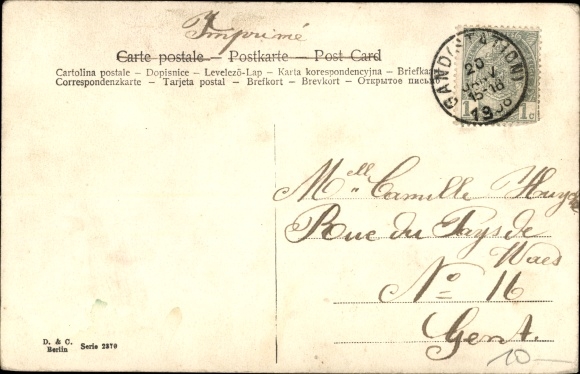 Imprimé
Carte postale — Postkarte — Post Card
Cartolina postale – Dopisnice – Levelező-Lap – Karta korespondencyjna – Briefkaa
Correspondenzkarte – Tarjeta postal – Brefkort – Brevkort – Открытое письм
GAND (STATION)
20
15-16
1908
1 1c
Mell Camille Huyg
Rue du Pays de
Waes
No 16
Gent.
10-
D. & C.
Berlin Serie 2370